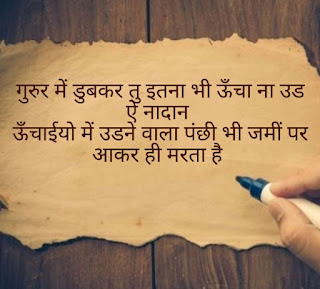 गुरुर में डुबकर तु इतना भी ऊँचा ना उड
ऐ नादान
ऊँचाईयो में उडने वाला पंछी भी जमीं पर
आकर ही मरता है